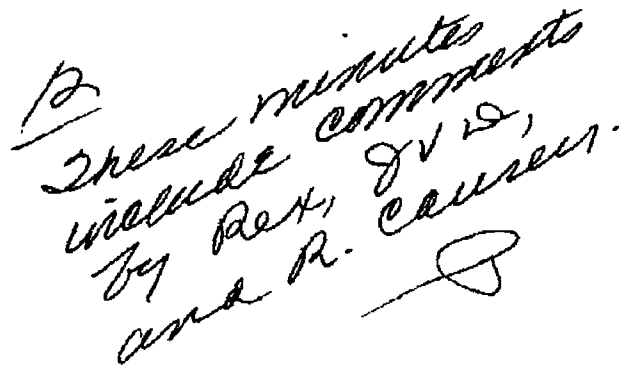 B
These minutes
include comments
by Rex, JVD,
and R. Causey.